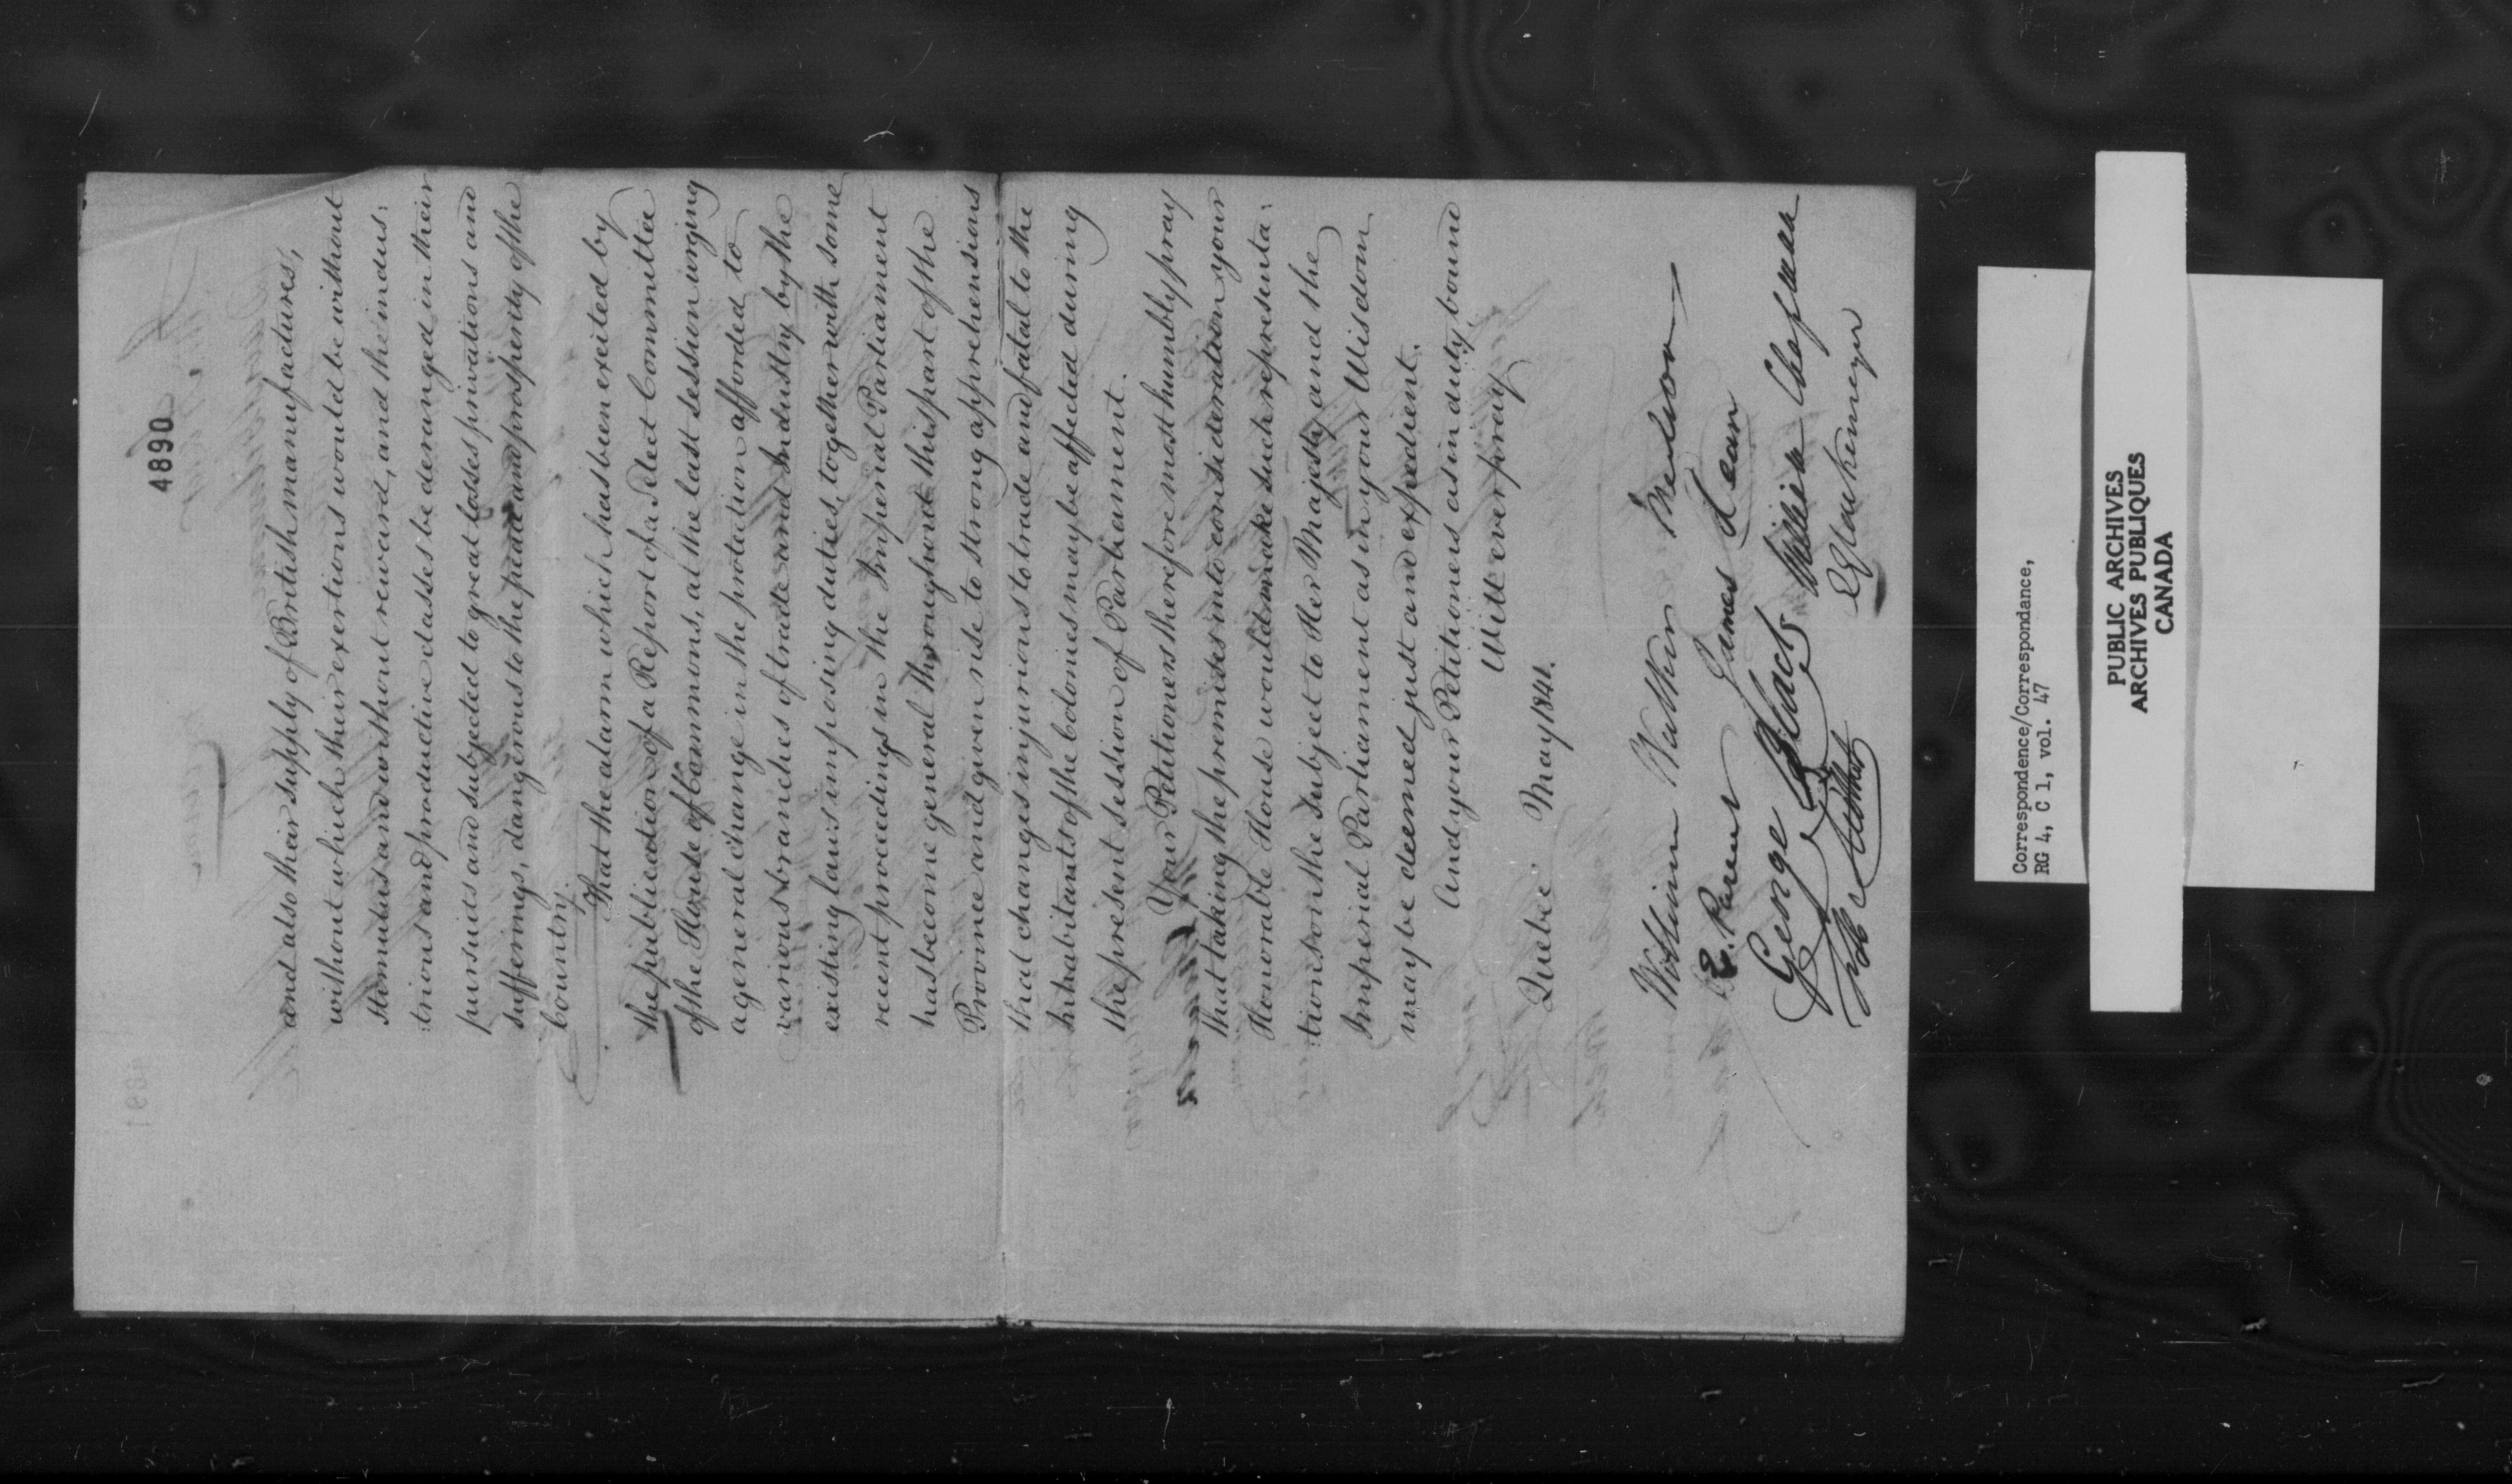 4890
and also their supply of British manufactures,
without which their exertions would be without
stimulus and without reward, and the indus:
:trious and productive classes be deranged in their
pursuits and subjected to great losses privations and
sufferings, dangerous to the peace and prosperity of the
Country.
That the alarm which has been excited by
the publication of a Report of a Select Committee
of the House of Commons, at the last session urging
a general change in the protection afforded to
various branches of trade and Industry by the
existing laws imposing duties, together with some
recent proceedings in the Imperial Parliament
has become general throughout this part of the
Province and given rise to strong apprehensions
that changes injurious to trade and fatal to the
Inhabitants of the Colonies may be affected during
the present session of Parliament.
Your Petitioners therefore most humbly pray
that taking the premises into consideration your
Honorable House would make such representa:
:tions on the subject to Her Majesty and the
Imperial Parliament as in your Wisdom
may be deemed just and expedient.
And your Petitioners as in duty bound
Will ever pray
Quebec May 1841.
William Walker
E. Parent James Dean
George Black William Chapman
Correspondence/Correspondance,
RG 4, C 1, vol. 47
PUBLIC ARCHIVES
ARCHIVES PUBLIQUES
CANADA